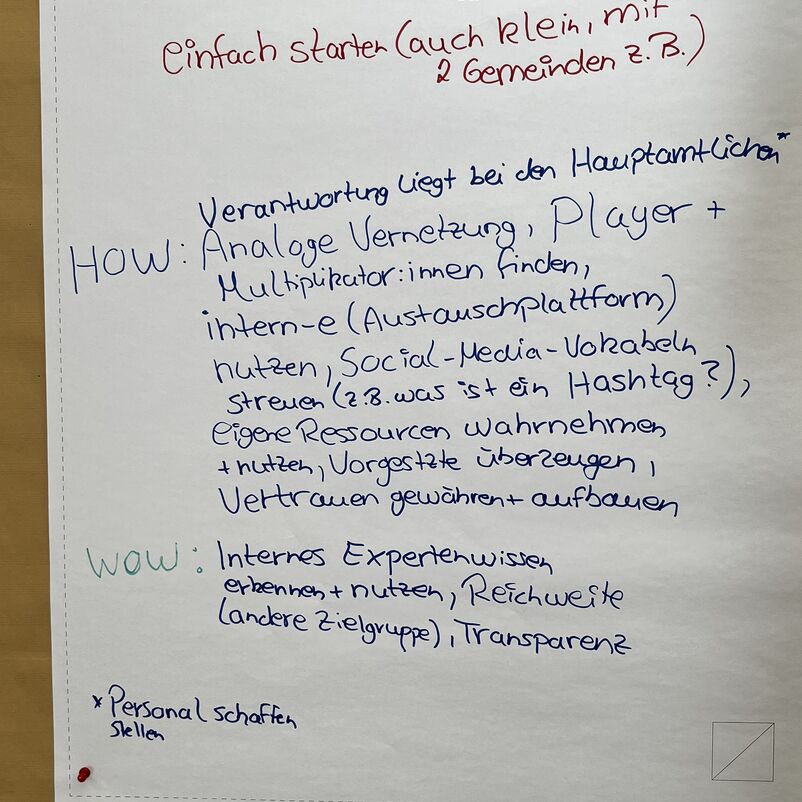 einfach starten (auch klein, mit
2 Gemeinden z.B.)
Verantwortung liegt bei den Hauptamtlichen*
HOW: Analoge Vernetzung, Player +
Multiplikator:innen finden,
intern-e (Austauschplattform)
nutzen, Social-Media-Vokabeln
streuen (z.B. was ist ein Hashtag?),
eigene Ressourcen wahrnehmen
+ nutzen, Vorgestzte überzeugen,
Vertrauen gewähren + aufbauen
WOW: Internes Expertenwissen
erkennen + nutzen, Reichweite
(andere Zielgruppe), Transparenz
* Personal schaffen
Stellen